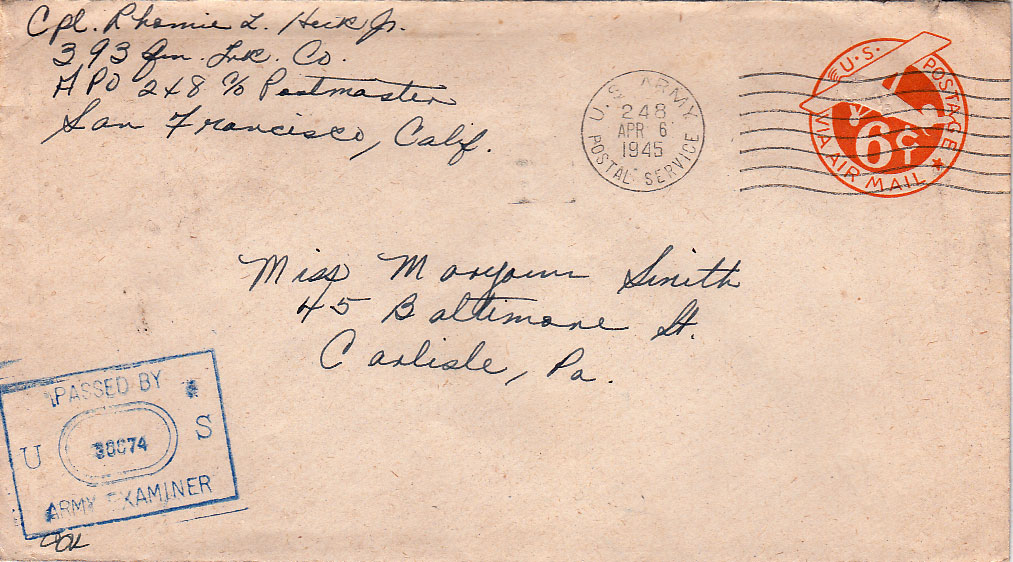 Cpl. Rhomie L. Heck Jr.
393 Qm. Trk. Co.
APO 248 c/o Postmaster
San Francisco, Calif.
U.S. ARMY
248
APR 6
1945
POSTAL SERVICE
U.S. POSTAGE
6¢
VIA AIR MAIL
Miss Maryann Smith
45 Baltimore St.
Carlisle, Pa.
PASSED BY
U S
ARMY EXAMINER